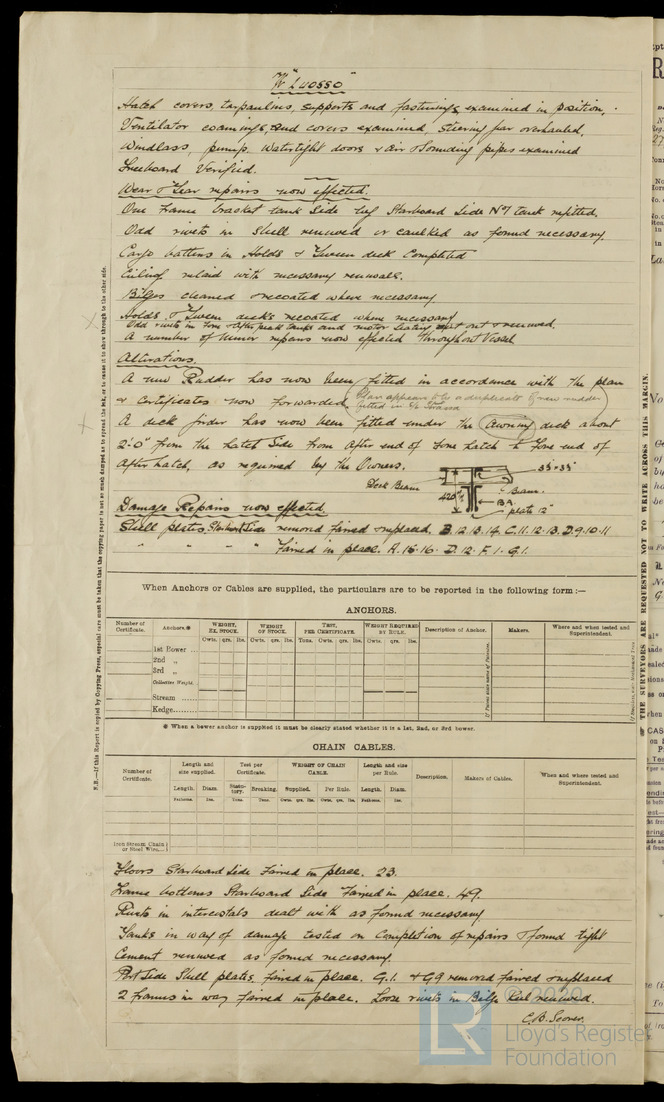 "LUOSSO"
Hatch covers, tarpaulins, supports and fastenings examined in position,
Ventilator coamings, and covers examined, steering gear overhauled,
Windlass, pumps, watertight doors & air & sounding pipes examined
Freeboard Verified.
Wear & Tear repairs now effected.
One frame bracket tank side Starboard Side No 1 tank refitted.
Odd rivets in Shell renewed or caulked as found necessary.
Cargo battens in Holds & Tween deck Completed
Ceiling relaid with necessary renewals.
Bilges cleaned & recoated where necessary
Holds & Tween decks recoated where necessary
Odd rivets in fore & after peak tanks and motor seating cut out & renewed.
A number of minor repairs now effected throughout Vessel
Alterations.
A new Rudder has now been fitted in accordance with the plan
& Certificates now forwarded (Plan appears to be a duplicate of new rudder
fitted in
A deck girder has now been fitted under the (Awning) deck about
2'.0" from the hatch side from after end of fore hatch to fore end of
after hatch, as required by the Owners.
Deck Beam
Beam.
BA
plate 12"
Damage Repairs now effected.
Shell plates Starboard Side removed faired & replaced. B.12.13.14. C.11.12.13. D.9.10.11
" " " " faired in place. A.15.16. D.12. F.1. G.1.
When Anchors or Cables are supplied, the particulars are to be reported in the following form :—
ANCHORS.
Number of Certificate. Anchors.* WEIGHT, EX. STOCK. WEIGHT OF STOCK. TEST, PER CERTIFICATE. WEIGHT REQUIRED BY RULE. Description of Anchor. Makers. Where and when tested and Superintendent.
Cwts. qrs. lbs. Cwts. qrs. lbs. Tons. Cwts. qrs. lbs. Cwts. qrs. lbs.
1st Bower ...
2nd „
3rd „
Collective Weight.
Stream ......
Kedge.........
* When a bower anchor is supplied it must be clearly stated whether it is a 1st, 2nd, or 3rd bower.
CHAIN CABLES.
Number of Certificate. Length and size supplied. Test per Certificate. WEIGHT OF CHAIN CABLE. Length and size per Rule. Description. Makers of Cables. When and where tested and Superintendent.
Length. Diam. Statutory. Breaking. Supplied. Per Rule. Length. Diam.
Fathoms. Ins. Tons. Tons. Cwts. qrs. lbs. Cwts. qrs. lbs. Fathoms. Ins.
Iron Stream Chain or Steel Wire...
Floors Starboard Side faired in place. 23.
Frame bottoms Starboard Side faired in place. 49.
Rivets in intercostals dealt with as found necessary
Tanks in way of damage tested on Completion of repairs & found tight
Cement renewed as found necessary.
Port Side Shell plates faired in place. G.1. & G9 removed faired & replaced
2 frames in way faired in place. Loose rivets in Bilge Keel renewed.
N.B.—If this Report is copied by Copying Press, especial care must be taken that the copying paper is not so much damped as to spread the ink, or to cause it to show through to the other side.
THE SURVEYORS ARE REQUESTED NOT TO WRITE ACROSS THIS MARGIN.
© 2020
LR
Lloyd's Register
Foundation